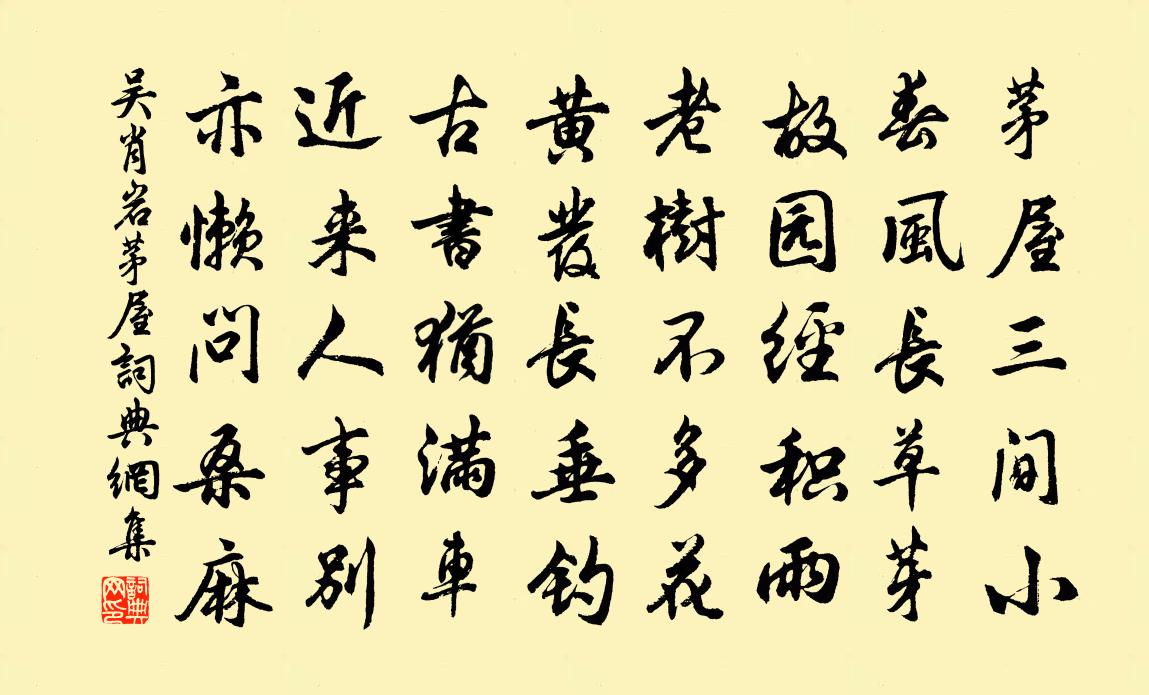 茅屋三间小
春風長草芽
故园經积雨
老樹不多花
黄發長垂钓
古書猶满車
近来人事别
亦懒问桑麻
吴肖岩茅屋詞典網集
詞典网印